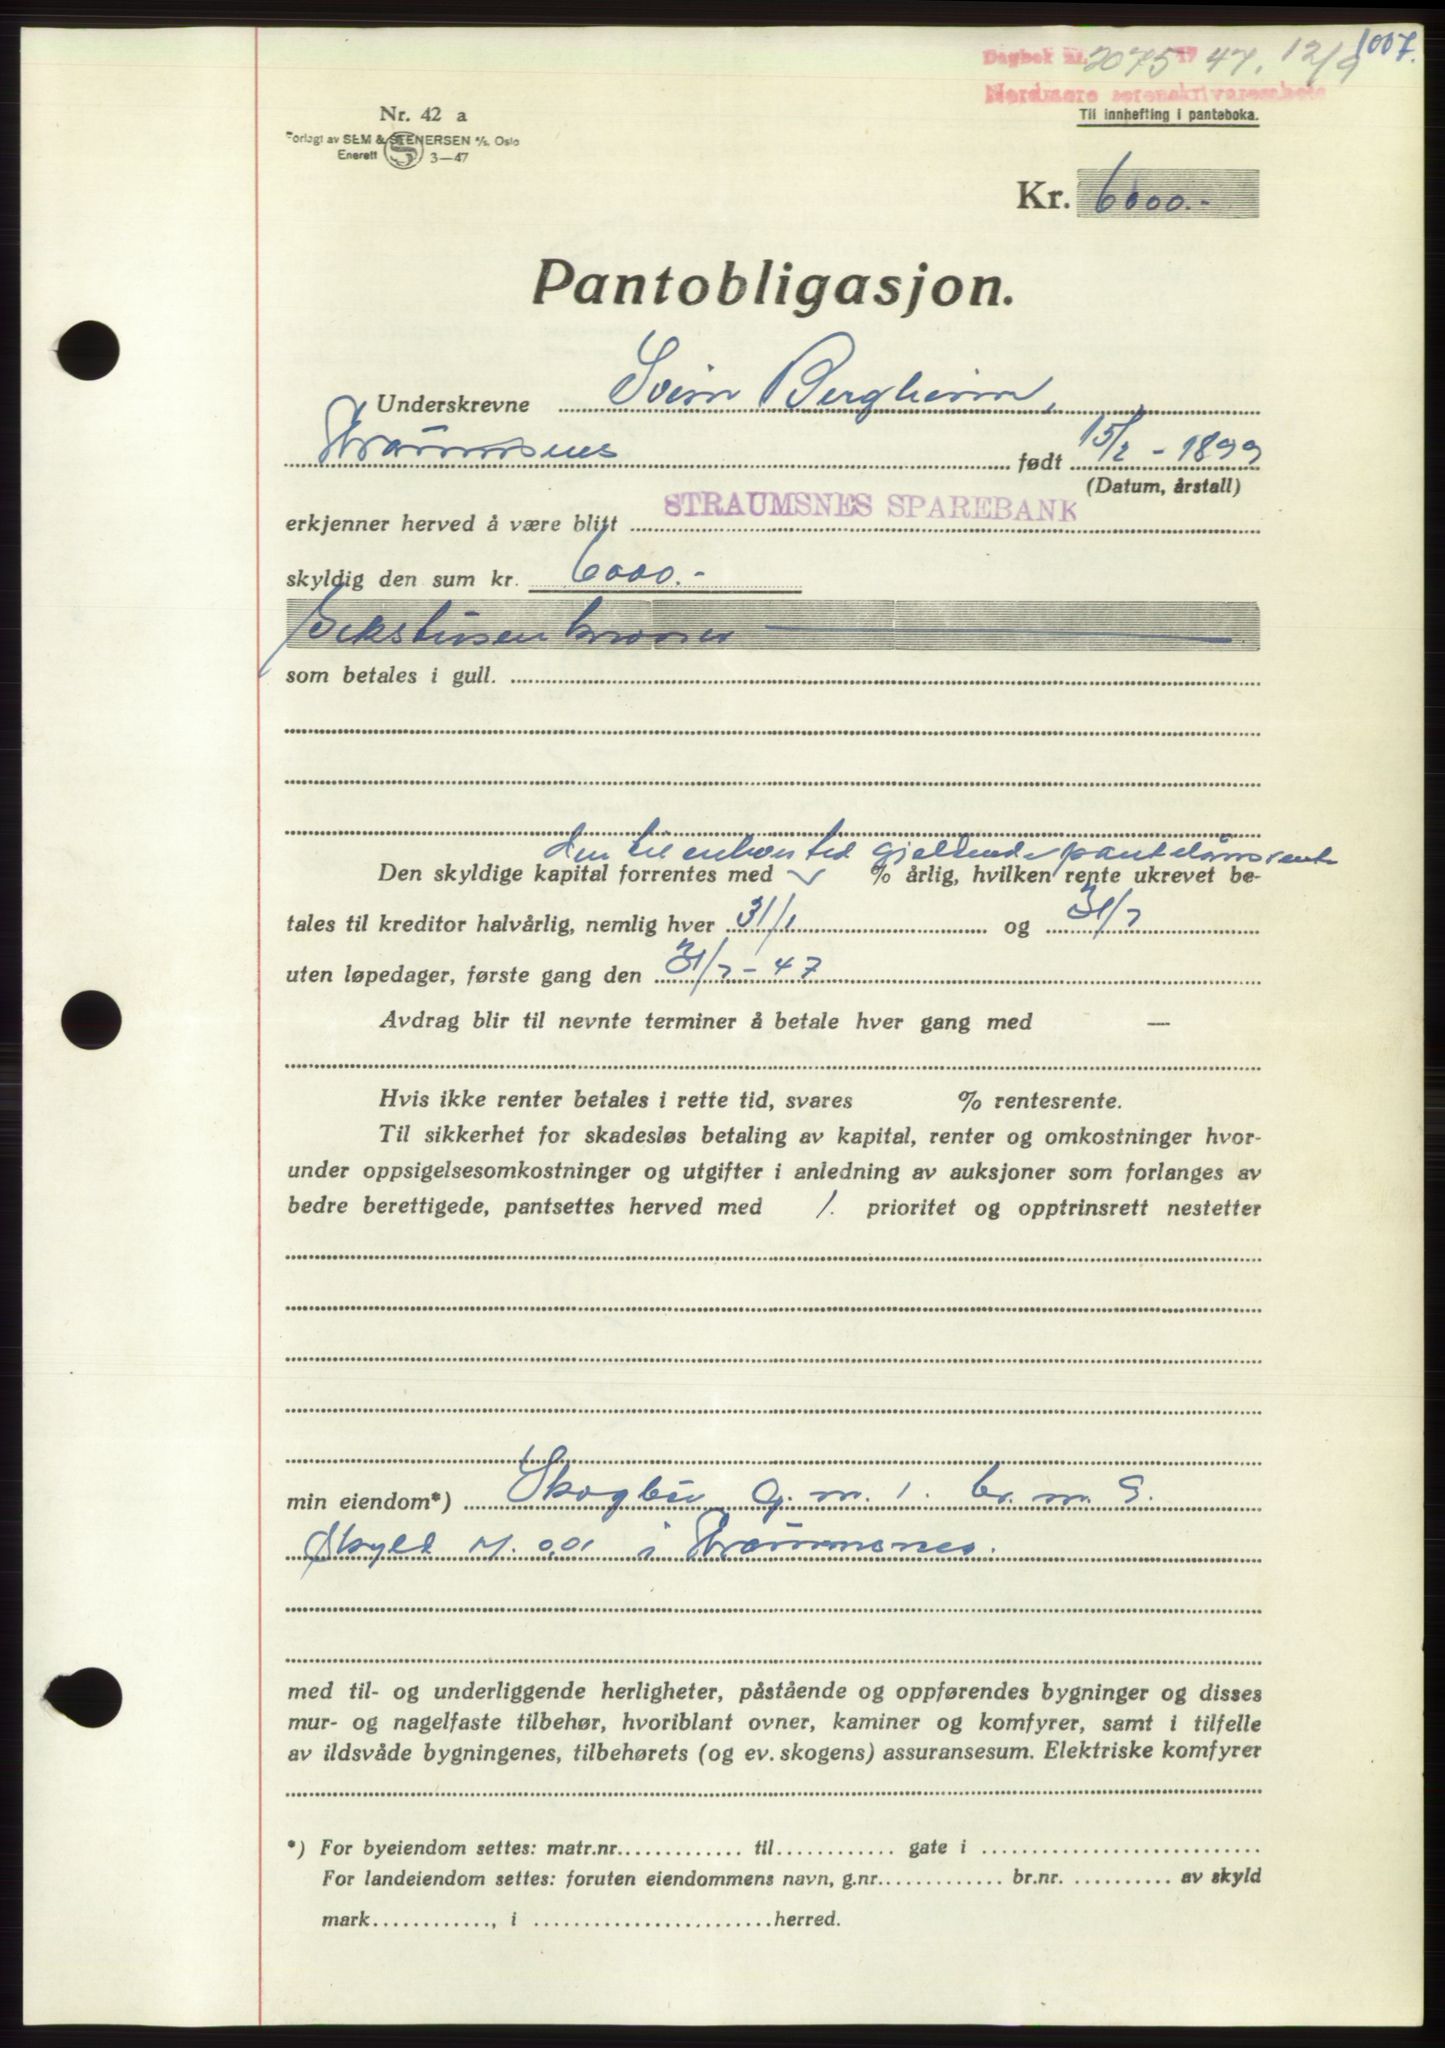 1007.
Dagbok nr. 2075 19 47. 12/9
Nordmøre sorenskriverembete
Til innhefting i panteboka.
Nr. 42 a
Forlagt av SEM & STENERSEN A/S. Oslo
Enerett 3—47
Kr. 6000.-
Pantobligasjon.
Underskrevne Svein Bergheim,
Straumsnes født 15/2 - 1899
(Datum, årstall)
erkjenner herved å være blitt STRAUMSNES SPAREBANK
skyldig den sum kr. 6000.-
Sekstusen kroner
som betales i gull.
den til enhver tid gjeldende pantelånsrente
Den skyldige kapital forrentes med % årlig, hvilken rente ukrevet be-
tales til kreditor halvårlig, nemlig hver 31/1 og 31/7
uten løpedager, første gang den 31/7 - 47
Avdrag blir til nevnte terminer å betale hver gang med —
Hvis ikke renter betales i rette tid, svares % rentesrente.
Til sikkerhet for skadesløs betaling av kapital, renter og omkostninger hvor-
under oppsigelsesomkostninger og utgifter i anledning av auksjoner som forlanges av
bedre berettigede, pantsettes herved med 1. prioritet og opptrinsrett nestetter
min eiendom*) Skogbu g.nr. 1. br.nr. 9.
Skyld M. 0,01 i Straumsnes.
med til- og underliggende herligheter, påstående og oppførendes bygninger og disses
mur- og nagelfaste tilbehør, hvoriblant ovner, kaminer og komfyrer, samt i tilfelle
av ildsvåde bygningenes, tilbehørets (og ev. skogens) assuransesum. Elektriske komfyrer
*) For byeiendom settes: matr.nr. til gate i
For landeiendom settes: foruten eiendommens navn, g.nr. br.nr. av skyld
mark , i herred.